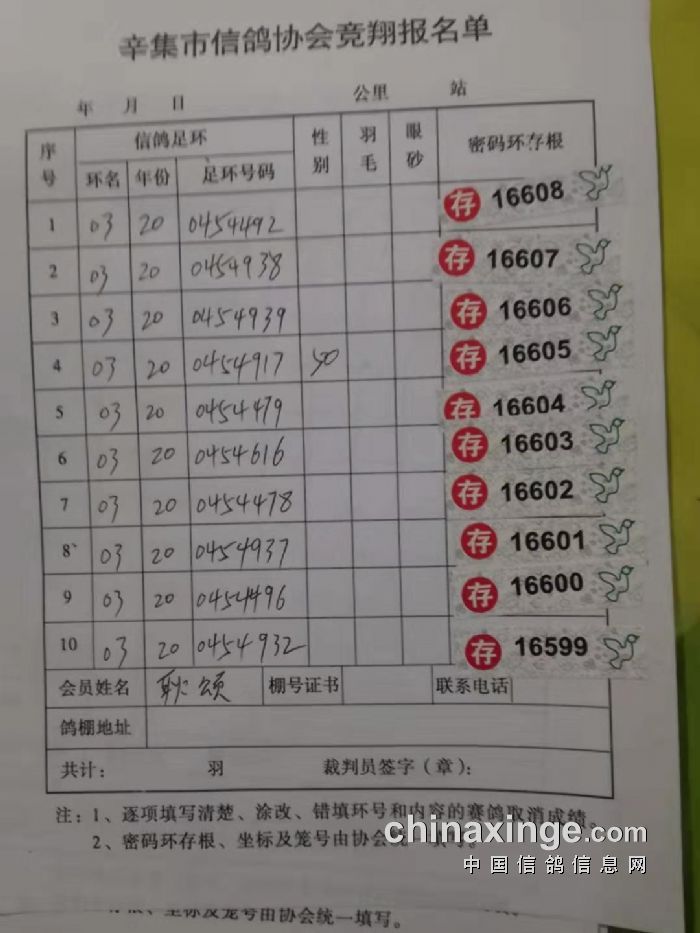 辛集市信鸽协会竞翔报名单
年 月 日 公里 站
序号 信鸽足环 性别 羽毛 眼砂 密码环存根
环名 年份 足环号码
1 03 20 0454492 存 16608
2 03 20 0454938 存 16607
3 03 20 0454939 存 16606
4 03 20 0454917 存 16605
5 03 20 0454479 存 16604
6 03 20 0454616 存 16603
7 03 20 0454478 存 16602
8 03 20 0454937 存 16601
9 03 20 0454496 存 16600
10 03 20 0454932 存 16599
会员姓名 耿颂 棚号证书 联系电话
鸽棚地址
共计: 羽 裁判员签字(章):
注:1、逐项填写清楚、涂改、错填环号和内容的赛鸽取消成绩。
2、密码环存根、坐标及笼号由协会统一填写。
chinaxinge.com
中国信鸽信息网
、坐标及笼号由协会统一填写。